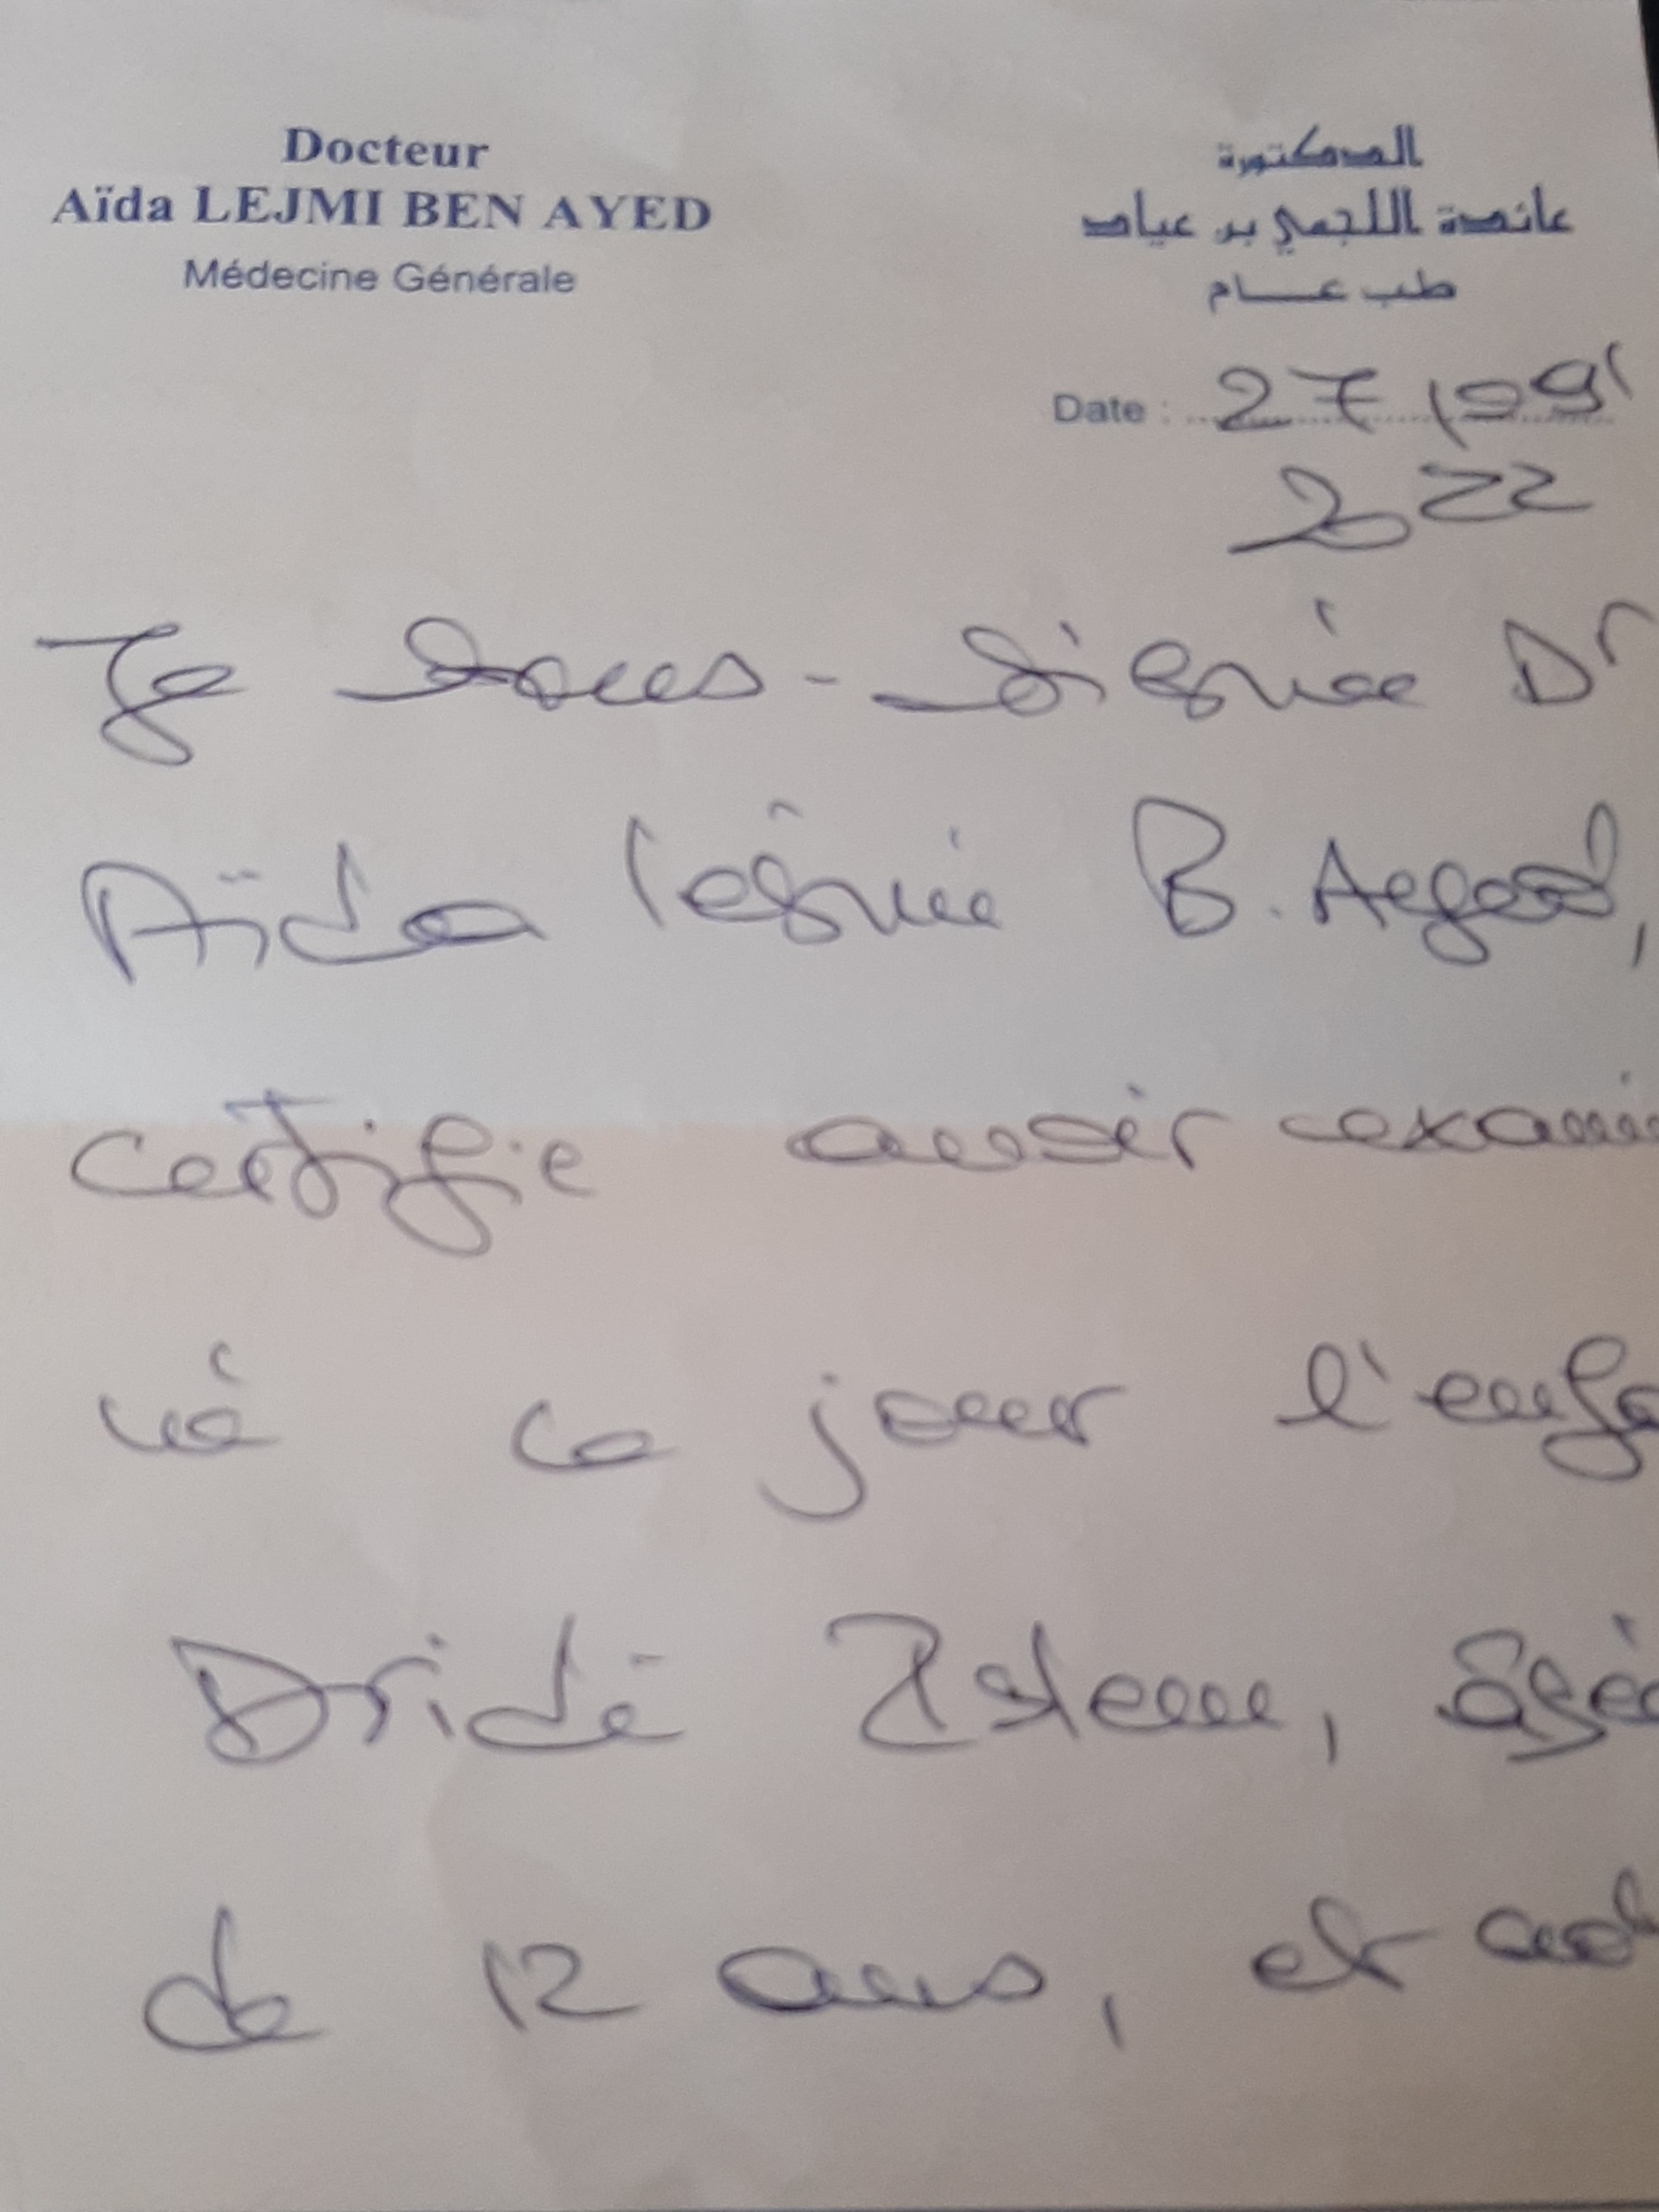 Docteur
Aïda LEJMI BEN AYED
Médecine Générale
الدكتورة
عائدة اللجمي بن عياد
طب عام
Date : 27/09/
2022
Je sous-signée Dr
Aïda Lejmi B. Ayed,
certifie avoir exami
né ce jour l'enfa
Dridi, âgée
de 12 ans, et